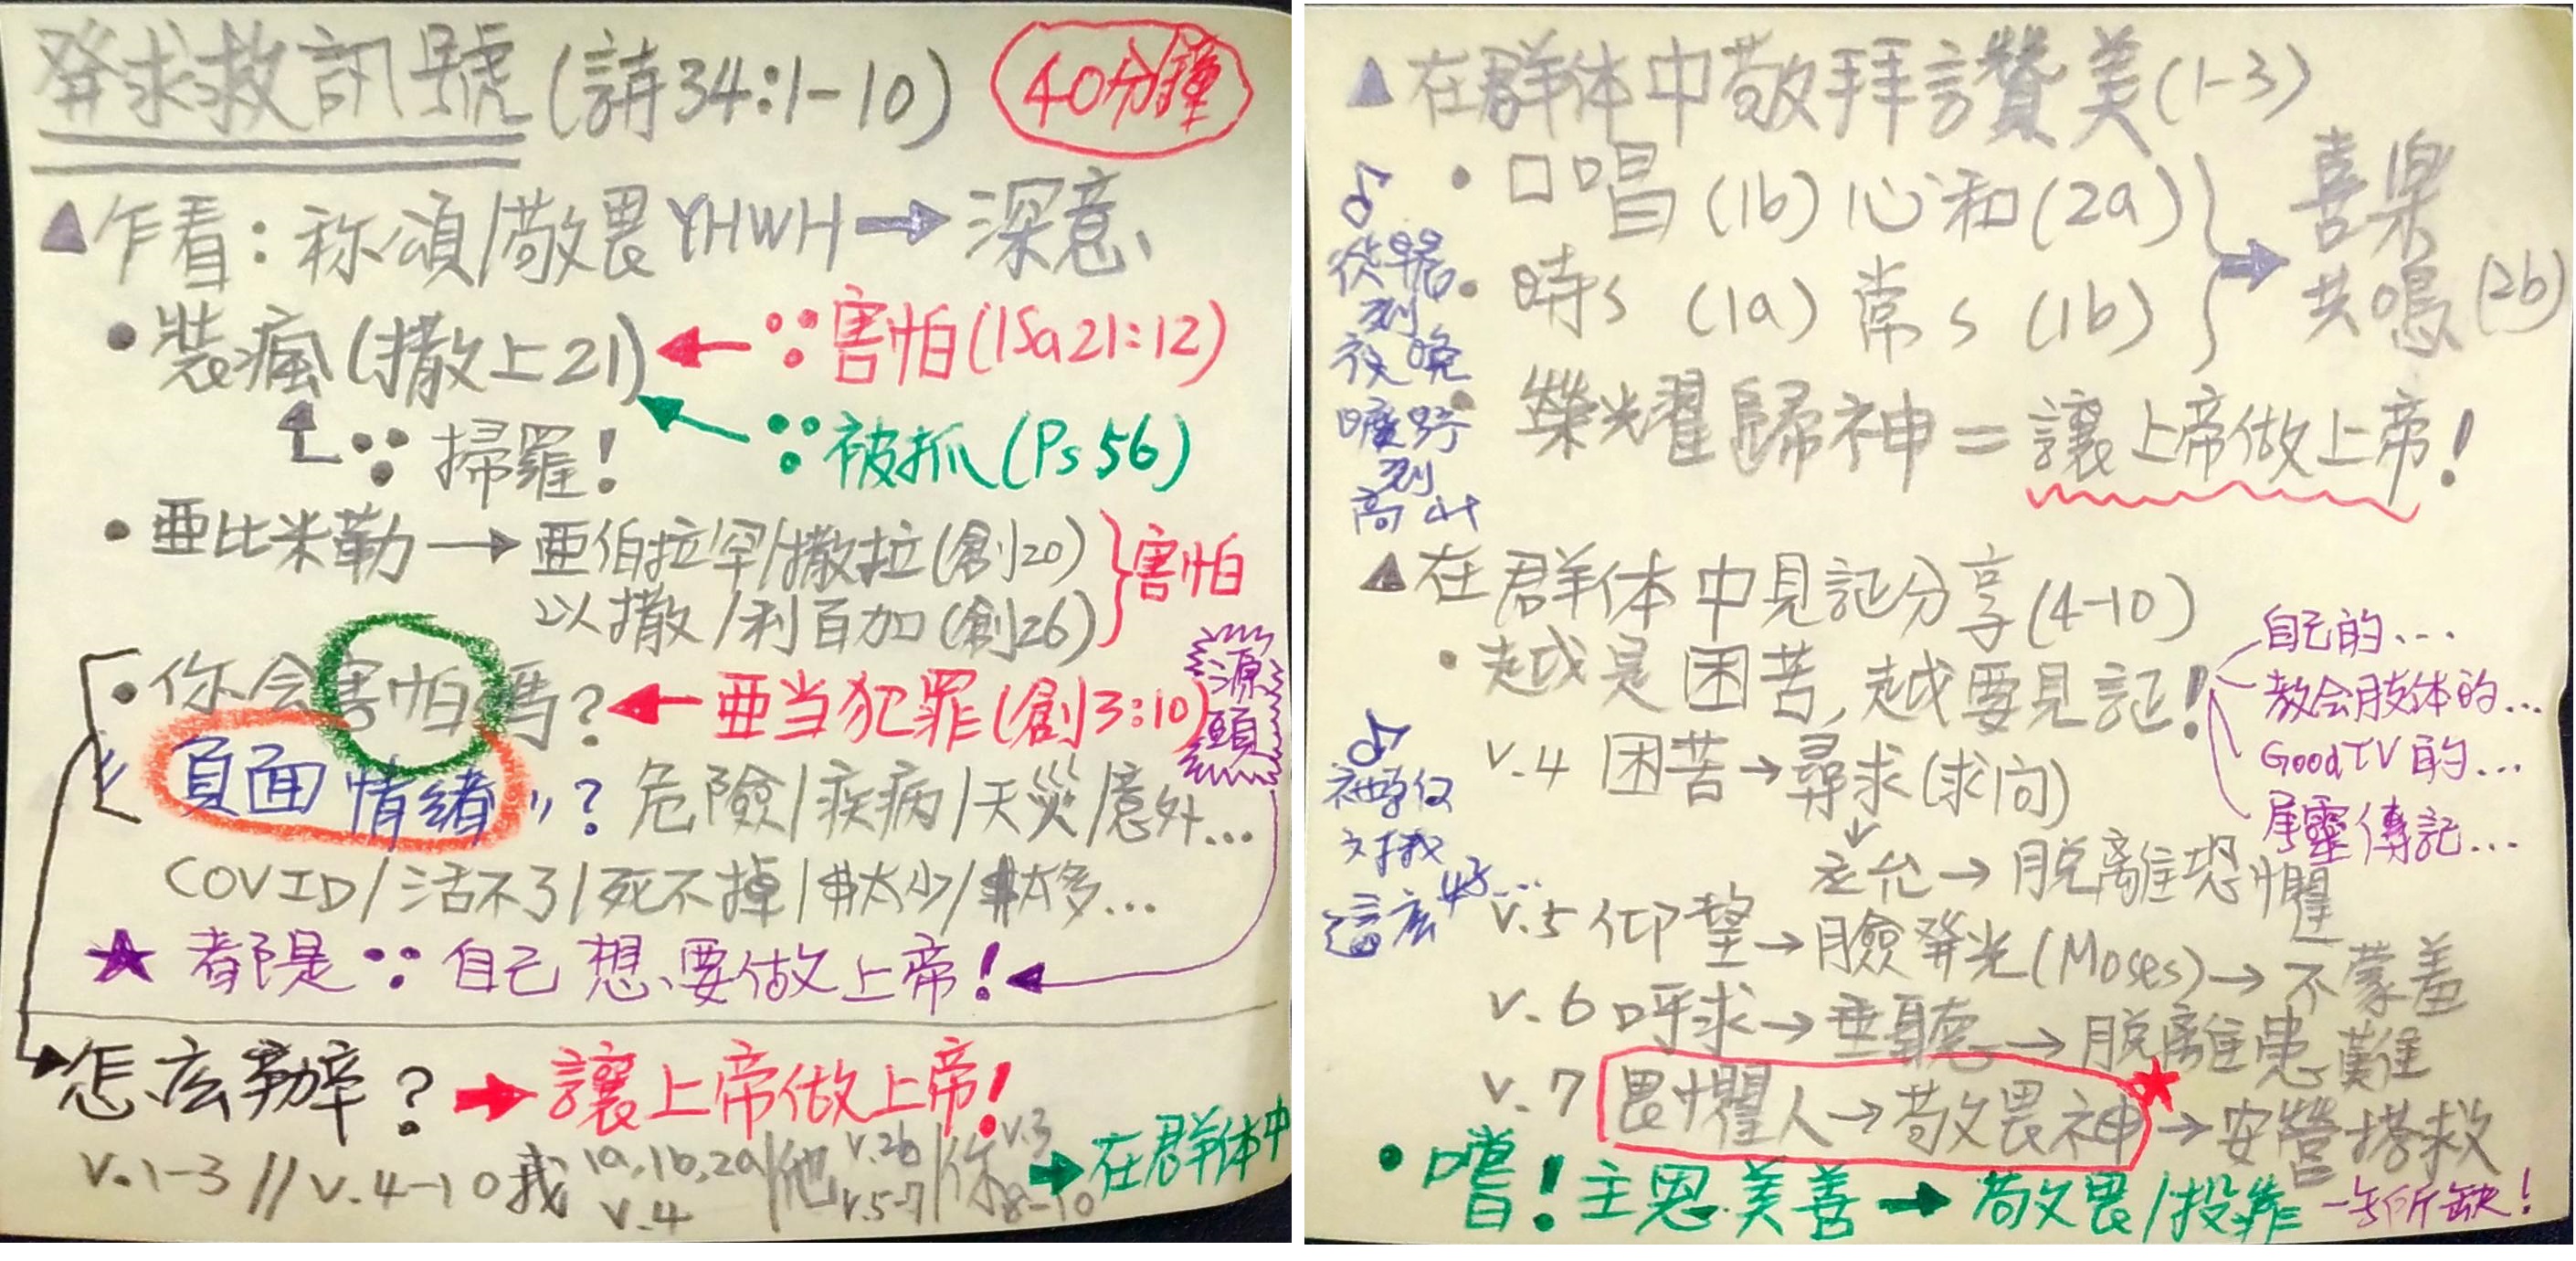 發求救訊號(詩34:1-10) 40分鐘
▲乍看:称頌/敬畏YHWH→深意
•裝瘋(撒上21)←∵害怕(1Sa21:12)
∵掃羅! ∵被抓(Ps56)
•亜比米勒→亜伯拉罕/撒拉(創20)
以撒/利百加(創26) }害怕
•你会害怕嗎?←亜当犯罪(創3:10) 源頭
"負面情緒"?危險/疾病/天災/意外…
COVID/活不了/死不掉/#太少/#太多…
★都是∵自己想要做上帝!
怎么辦?→讓上帝做上帝!
v.1-3//v.4-10我 1a,1b,2a v.4/他 v.2b v.5-7/你 v.3 8-10→在群体中
▲在群体中敬拜讚美(1-3)
•口唱(1b)心和(2a)
•時s(1a)常s(1b) }→喜楽共鳴(2b)
•榮光耀歸神=讓上帝做上帝!
♪從早晨
到
夜晚
曠野
到
高山
▲在群体中見証分享(4-10)
•越是困苦,越要見証!
自己的…
教会肢体的…
GoodTV的…
屬靈傳記…
v.4困苦→尋求(求问)
→応允→脫離恐懼
♪祂為何
对我
這広好…
v.5仰望→臉發光(Moses)→不蒙羞
v.6呼求→垂聽→脫離患難
v.7畏懼人→敬畏神★→安營搭救
•嚐!主恩美善→敬畏/投靠 一無所缺!